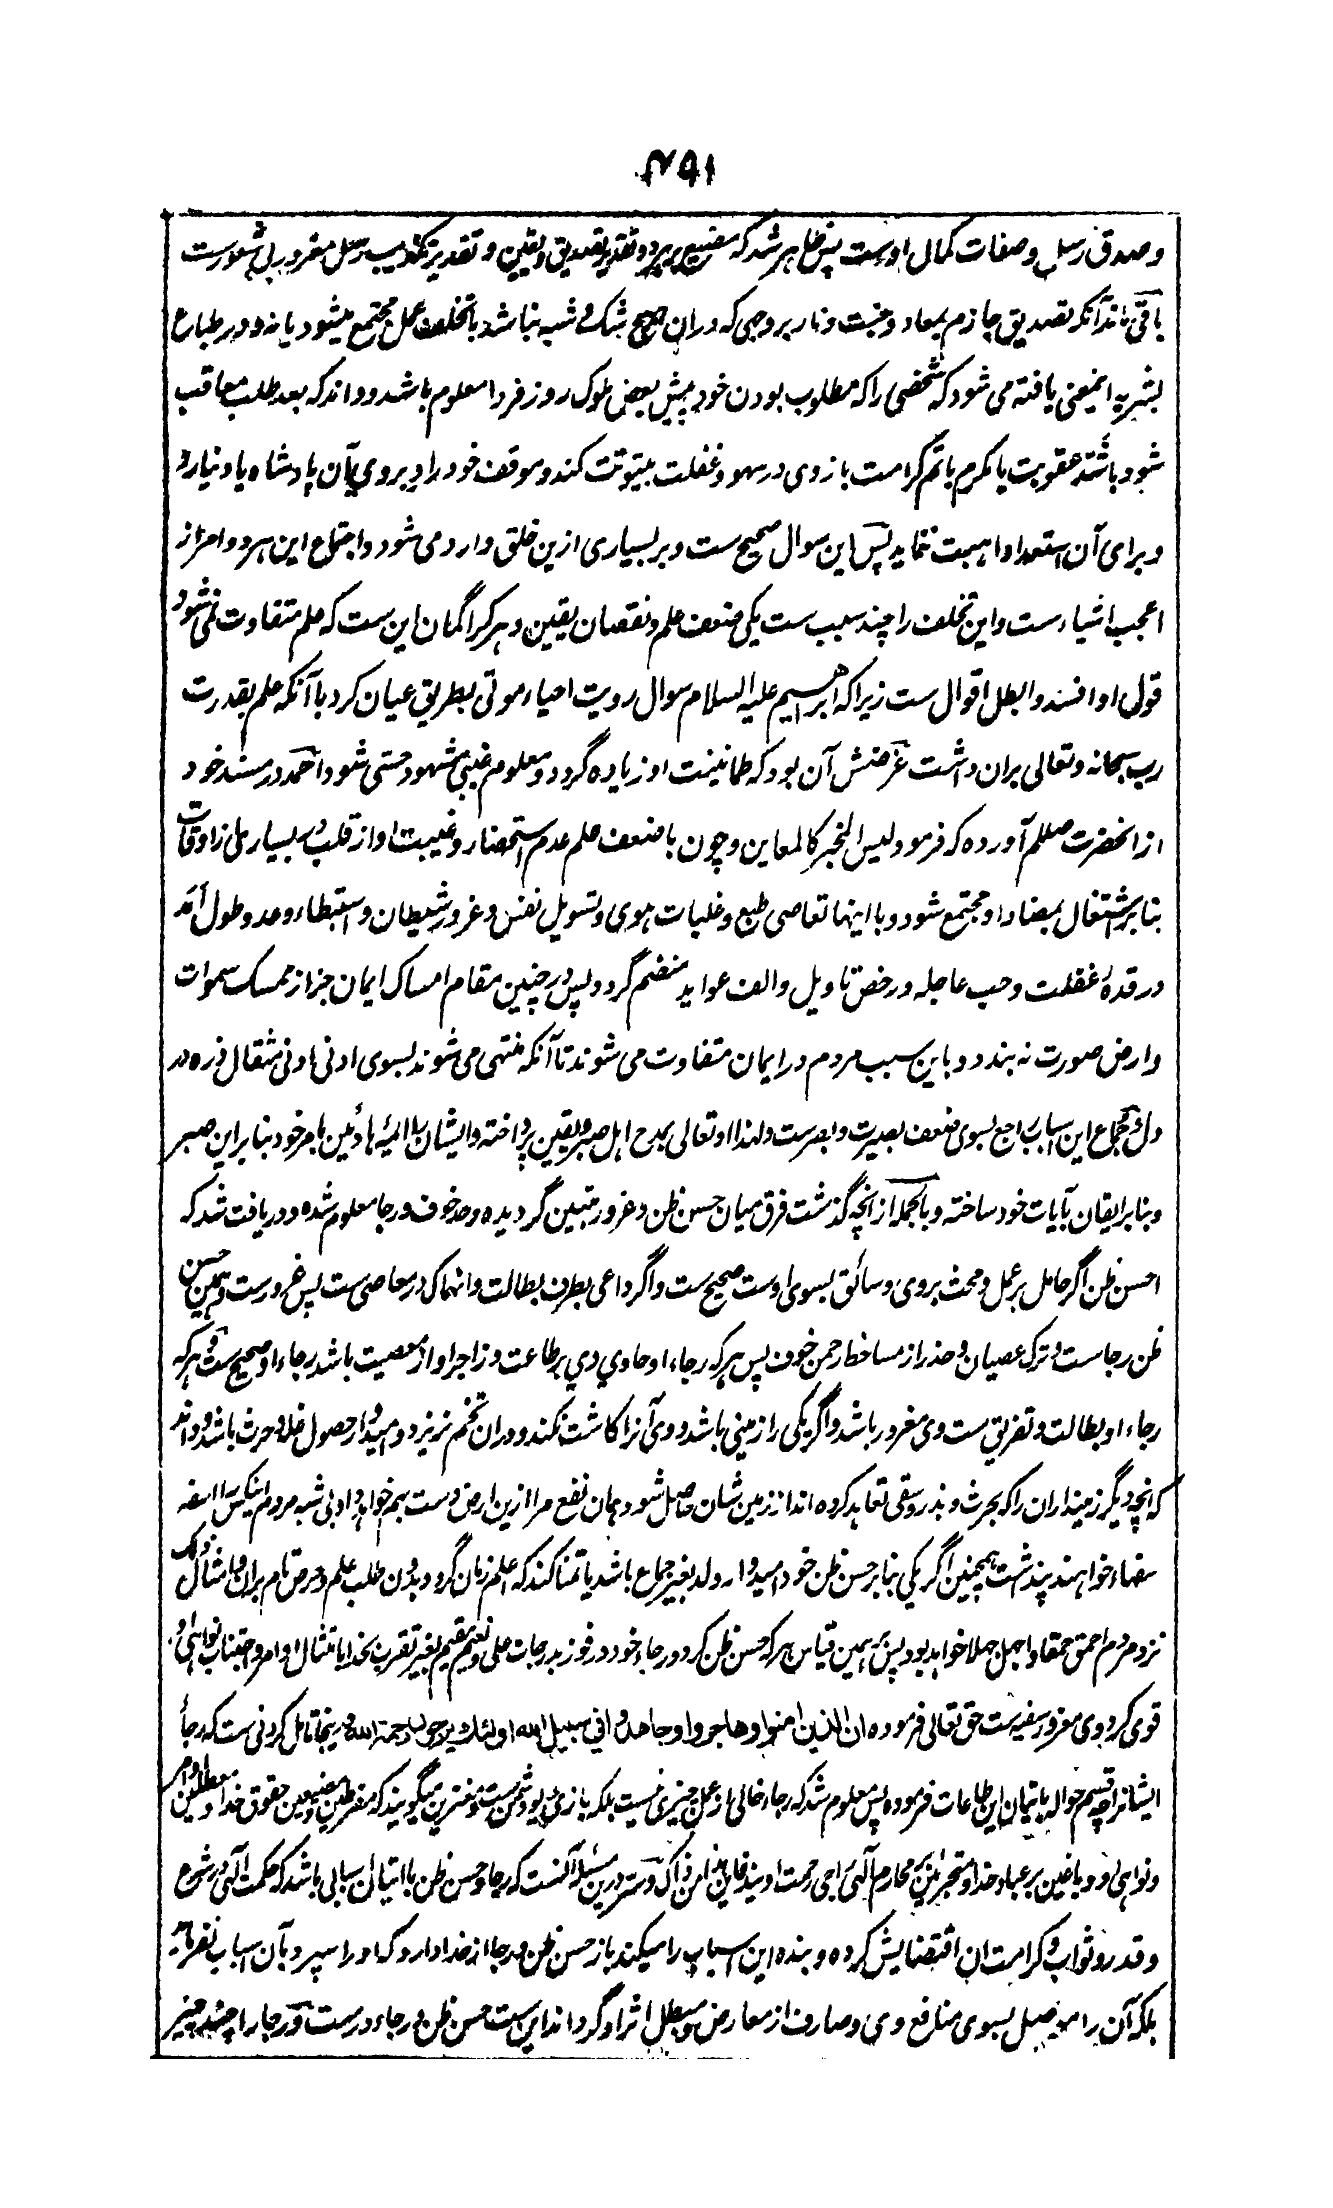 وصدق رسل وصفات کمال اوست پس ظاهر شد که مضیع بر هر دو تقدیر تصدیق ویقین و تقدیر تکذیب رسل مغرور بی شعورست
باقی ماند آنکه تصدیق جازم بمعاد وجنت ونار بروجهی که دران هیچ شک و شبه نباشد با تخلف عمل مجتمع میشود یا نه ودر طباع
بشریه اینمعنی یافته می شود که شخصی را که مطلوب بودن خود پیش بعض ملوک روز فردا معلوم باشد وداند که بعد طلب معاقب
شود باشد عقوبت یا مکرم باتم کرامت بازوی در سهو وغفلت بیتوتت کند وموقف خود را روبروی آن پادشاه یاد نیارد
وبرای آن استعداد واهبت ننماید پس این سوال صحیح ست وبر بسیاری ازین خلق وارد می شود واجتماع این هر دو امر از
اعجب اشیاء ست واین تخلف را چند سبب ست یکی ضعف علم ونقصان یقین وهر کرا گمان این ست که علم متفاوت نمی شود
قول او افسد وابطل اقوال ست زیرا که ابراهیم علیه السلام سوال رویت احیاء موتی بطریق عیان کرد با آنکه علم بقدرت
رب سبحانه وتعالی بران داشت غرضش آن بود که طمانینت او زیاده گردد ومعلوم غیبی مشهود حسی شود احمد در مسند خود
از آنحضرت صللم آورده که فرمود لیس الخبر کالمعاین وچون با ضعف علم عدم استحضار وغیبت او از قلب در بسیاری از اوقات
بنابر اشتغال بمضاد او مجتمع شود وبا اینها تعاصی طبع وغلبات هوی وتسویل نفس وغرور شیطان واستبطاء وعد وطول امد
ورقدهٔ غفلت وحب عاجله ورخص تاویل والف عواید منضم گردد پس در چنین مقام امساک ایمان جز از ممسک سموات
وارض صورت نه بندد وباین سبب مردم در ایمان متفاوت می شوند تا آنکه منتهی می شوند بسوی ادنی ادنی مثقال ذره در
دل وجماع این اسباب راجع بسوی ضعف بصیرت وبصرست ولهذا او تعالی بمدح اهل صبر ویقین پرداخته وایشان را ائمهٔ هادئین بامر خود بنابر این صبر
وبنابر ایقان بآیات خود ساخته وبالجمله از آنچه گذشت فرق میان حسن ظن وغرور متبین گردیده وحد خوف ورجا معلوم شده ودریافت شد که
احسن ظن اگر حامل بر عمل ومحث بروی وسائق بسوی اوست صحیح ست واگر داعی بطرف بطالت وانهماک در معاصی ست پس غرورست وهمین حسن
ظن رجاست وترک عصیان وحذر از مساخط رحمن خوف پس هر که رجاء او حاوی وی بر طاعت وزاجر او از معصیت باشد رجاء او صحیح ست وهر که
رجاء او بطالت وتفریق ست وی مغرور باشد واگر یکی را زمینی باشد ووی آنرا کاشت نکند ودران تخم نریزد وامیدوار حصول غله وحرث باشد وداند
که آنچه دیگر زمینداران را که بحرث وبذر وسقی تعاهد کرده اند از زمین شان حاصل شود همان نفع مرا ازین ارض دست بهم خواهد داد لابی شبه مردم اینکس را اسفه
سفهاء خواهند پنداشت همچنین اگر یکی بنابر حسن ظن خود امیدوار ولد بغیر جماع باشد یا تمنا کند که اعلم زمان گردد بدون طلب علم وحرص تام بران وامثال ذلک
نزد مردم احمق حمقا واجهل جهلا خواهد بود پس بر همین قیاس هر که حسن ظن کرد ورجاء خود در فوز بدرجات علی ونعیم مقیم بغیر تقرب بخدا بامتثال اوامر واجتناب نواهی او
قوی کرد وی مغرور سفیه ست حق تعالی فرموده ان الذین امنوا وهاجروا وجاهدوا فی سبیل الله اولئک یرجون رحمة الله درینجا تامل کردنی ست که رجأ
ایشانرا چه قسم حواله باتیان این طاعات فرموده پس معلوم شد که رجاء خالی از عمل چیزی نیست بلکه بازی دیو دشمن ست ومغترین میگویند که مفرطین ومضیعین حقوق خدا ومعطلین اوامر
ونواهی او وباغین بر عباد خدا ومتجرئین بر محارم الهی راجی رحمت اویند فاین هذا من ذاک وسر درین مسئله آنست که رجا وحسن ظن با اتیان اسبابی باشد که حکمت الهی در شرع
وقدر وثواب وکرامت آن اقتضایش کرده وبنده این اسباب را میکند باز حسن ظن ورجا از خدا دارد که او را سپرد بآن اسباب نفرماید
بلکه آن را موصل بسوی منافع وی وصارف از معارض ومبطل اثر او گرداند این ست حسن ظن ورجاء درست ورجا را چند چیز